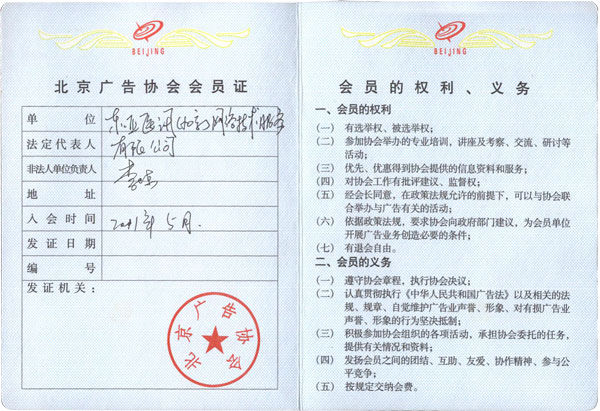 BEIJING
北京广告协会会员证
单位 东亚医讯(北京)网络技术服务
法定代表人 有限公司
非法人单位负责人
地址
入会时间 2011年5月.
发证日期
编号
发证机关:
北京广告协会
BEIJING
会员的权利、义务
一、会员的权利
(一) 有选举权、被选举权;
(二) 参加协会举办的专业培训,讲座及考察、交流、研讨等
活动;
(三) 优先、优惠得到协会提供的信息资料和服务;
(四) 对协会工作有批评建议、监督权;
(五) 经会长同意,在政策法规允许的前提下,可以与协会联
合举办与广告有关的活动;
(六) 依据政策法规,要求协会向政府部门建议,为会员单位
开展广告业务创造必要的条件;
(七) 有退会自由。
二、会员的义务
(一) 遵守协会章程,执行协会决议;
(二) 认真贯彻执行《中华人民共和国广告法》以及相关的法
规、规章、自觉维护广告业声誉、形象、对有损广告业声
誉、形象的行为坚决抵制;
(三) 积极参加协会组织的各项活动,承担协会委托的任务,
提供有关情况和资料;
(四) 发扬会员之间的团结、互助、友爱、协作精神,参与公
平竞争;
(五) 按规定交纳会费。